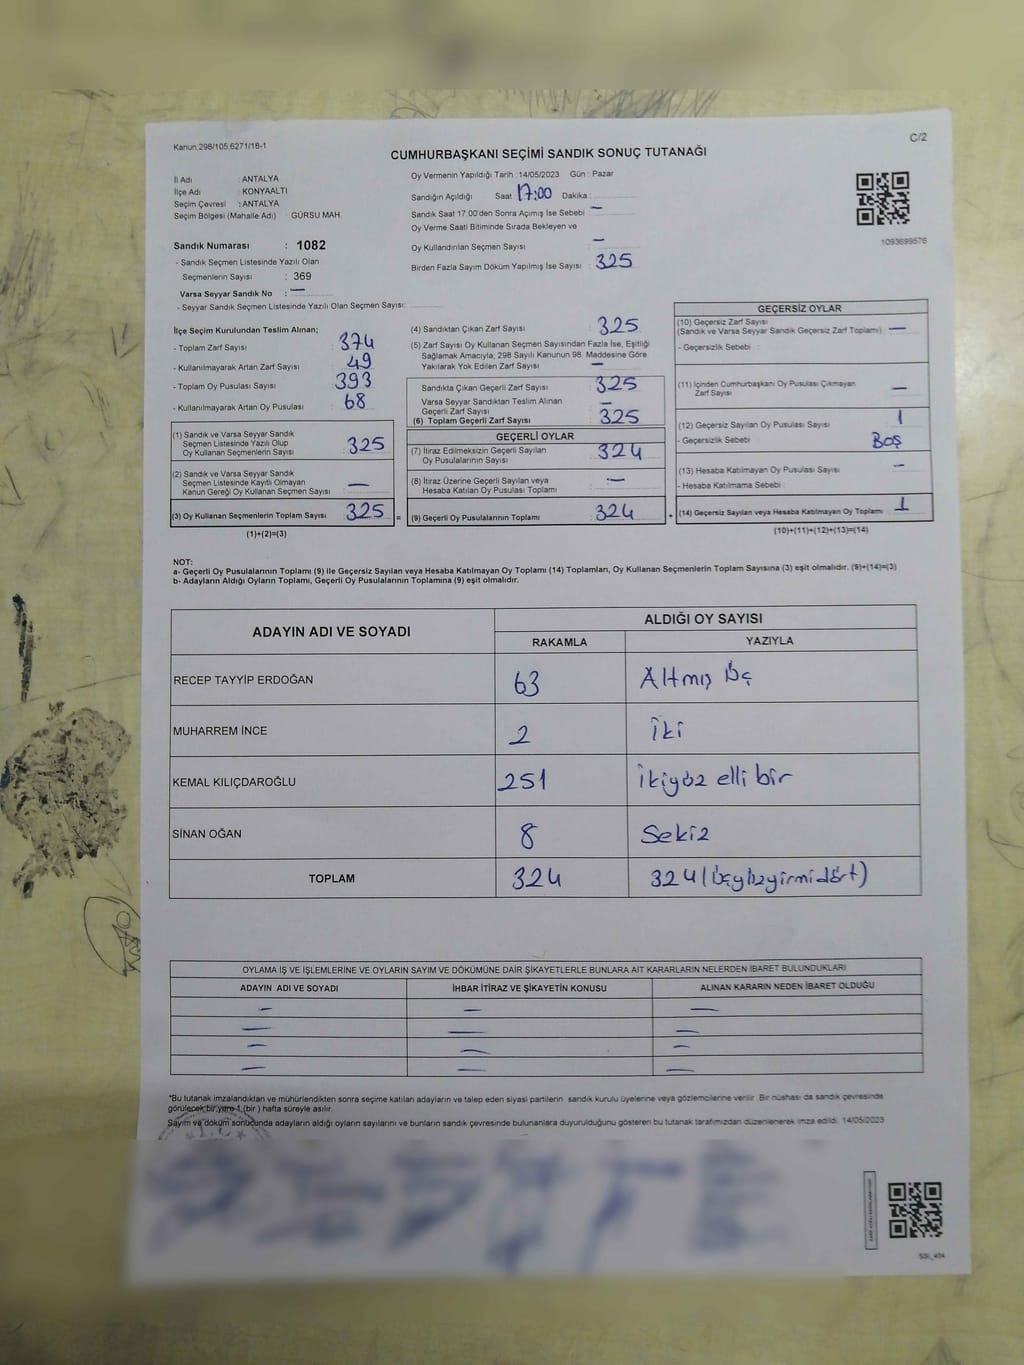 C/2
Kanun:298/105,6271/18-1
CUMHURBAŞKANI SEÇİMİ SANDIK SONUÇ TUTANAĞI
İl Adı : ANTALYA
İlçe Adı : KONYAALTI
Seçim Çevresi : ANTALYA
Seçim Bölgesi (Mahalle Adı) GÜRSU MAH.
Sandık Numarası : 1082
- Sandık Seçmen Listesinde Yazılı Olan
Seçmenlerin Sayısı : 369
Varsa Seyyar Sandık No : —
- Seyyar Sandık Seçmen Listesinde Yazılı Olan Seçmen Sayısı:
Oy Vermenin Yapıldığı Tarih :14/05/2023 Gün : Pazar
Sandığın Açıldığı Saat 17:00 Dakika :
Sandık Saat 17.00'den Sonra Açımış İse Sebebi —
Oy Verme Saati Bitiminde Sırada Bekleyen ve
Oy Kullandırılan Seçmen Sayısı : —
Birden Fazla Sayım Döküm Yapılmış İse Sayısı : 325
1093699576
İlçe Seçim Kurulundan Teslim Alınan;
- Toplam Zarf Sayısı : 374
- Kullanılmayarak Artan Zarf Sayısı : 49
- Toplam Oy Pusulası Sayısı : 393
- Kullanılmayarak Artan Oy Pusulası : 68
(1) Sandık ve Varsa Seyyar Sandık
Seçmen Listesinde Yazılı Olup
Oy Kullanan Seçmenlerin Sayısı : 325
(2) Sandık ve Varsa Seyyar Sandık
Seçmen Listesinde Kayıtlı Olmayan
Kanun Gereği Oy Kullanan Seçmen Sayısı : —
(3) Oy Kullanan Seçmenlerin Toplam Sayısı : 325 =
(1)+(2)=(3)
(4) Sandıktan Çıkan Zarf Sayısı : 325
(5) Zarf Sayısı Oy Kullanan Seçmen Sayısından Fazla İse, Eşitliği
Sağlamak Amacıyla, 298 Sayılı Kanunun 98. Maddesine Göre
Yakılarak Yok Edilen Zarf Sayısı : —
Sandıkta Çıkan Geçerli Zarf Sayısı : 325
Varsa Seyyar Sandıktan Teslim Alınan
Geçerli Zarf Sayısı : —
(6) Toplam Geçerli Zarf Sayısı : 325
GEÇERLİ OYLAR
(7) İtiraz Edilmeksizin Geçerli Sayılan
Oy Pusulalarının Sayısı : 324
(8) İtiraz Üzerine Geçerli Sayılan veya
Hesaba Katılan Oy Pusulası Toplamı : —
(9) Geçerli Oy Pusulalarının Toplamı : 324 +
GEÇERSİZ OYLAR
(10) Geçersiz Zarf Sayısı
(Sandık ve Varsa Seyyar Sandık Geçersiz Zarf Toplamı) : —
- Geçersizlik Sebebi :
(11) İçinden Cumhurbaşkanı Oy Pusulası Çıkmayan
Zarf Sayısı : —
(12) Geçersiz Sayılan Oy Pusulası Sayısı : 1
- Geçersizlik Sebebi : BOŞ
(13) Hesaba Katılmayan Oy Pusulası Sayısı : —
- Hesaba Katılmama Sebebi :
(14) Geçersiz Sayılan veya Hesaba Katılmayan Oy Toplamı : 1
(10)+(11)+(12)+(13)=(14)
NOT:
a- Geçerli Oy Pusulalarının Toplamı (9) ile Geçersiz Sayılan veya Hesaba Katılmayan Oy Toplamı (14) Toplamları, Oy Kullanan Seçmenlerin Toplam Sayısına (3) eşit olmalıdır. (9)+(14)=(3)
b- Adayların Aldığı Oyların Toplamı, Geçerli Oy Pusulalarının Toplamına (9) eşit olmalıdır.
ADAYIN ADI VE SOYADI ALDIĞI OY SAYISI
RAKAMLA YAZIYLA
RECEP TAYYİP ERDOĞAN 63 Altmış Üç
MUHARREM İNCE 2 İki
KEMAL KILIÇDAROĞLU 251 İkiyüz elli bir
SİNAN OĞAN 8 Sekiz
TOPLAM 324 324 (üçyüzyirmidört)
OYLAMA İŞ VE İŞLEMLERİNE VE OYLARIN SAYIM VE DÖKÜMÜNE DAİR ŞİKAYETLERLE BUNLARA AİT KARARLARIN NELERDEN İBARET BULUNDUKLARI
ADAYIN ADI VE SOYADI İHBAR İTİRAZ VE ŞİKAYETİN KONUSU ALINAN KARARIN NEDEN İBARET OLDUĞU
— — —
— — —
— — —
— — —
*Bu tutanak imzalandıktan ve mühürlendikten sonra seçime katılan adayların ve talep eden siyasi partilerin sandık kurulu üyelerine veya gözlemcilerine verilir. Bir nüshası da sandık çevresinde
görülecek bir yere 1 (bir ) hafta süreyle asılır.
Sayım ve döküm sonucunda adayların aldığı oyların sayılarını ve bunların sandık çevresinde bulunanlara duyurulduğunu gösteren bu tutanak tarafımızdan düzenlenerek imza edildi. 14/05/2023